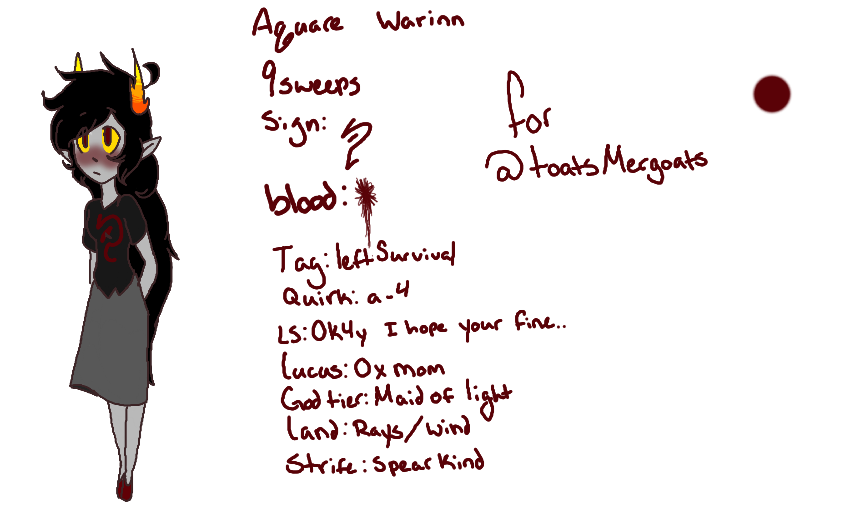 Aquare Warinn
9sweeps
Sign:
blood:
for
@toatsMergoats
Tag: leftSurvival
Quirk: a-4
LS: Ok4y I hope your fine..
Lucus: Ox mom
God tier: Maid of light
Land: Rays/Wind
Strife: Spearkind